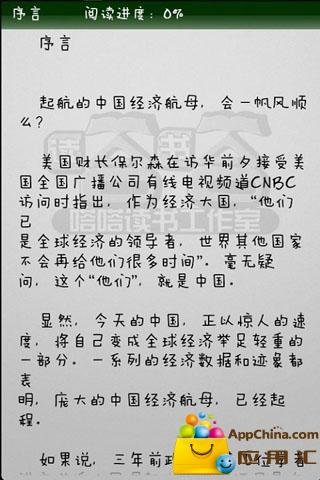 序言 阅读进度：0%
序言
起航的中国经济航母，会一帆风顺
么？
美国财长保尔森在访华前夕接受美
国全国广播公司有线电视频道CNBC
访问时指出，作为经济大国，“他们
已
是全球经济的领导者，世界其他国家
不会再给他们很多时间”。毫无疑
问，这个“他们”，就是中国。
显然，今天的中国，正以惊人的速
度，将自己变成全球经济举足轻重的
一部分。一系列的经济数据和迹象都
表
明，庞大的中国经济航母，已经起
程。
如果说，三年前政
嗒嗒读书工作室
AppChina.com
应用汇